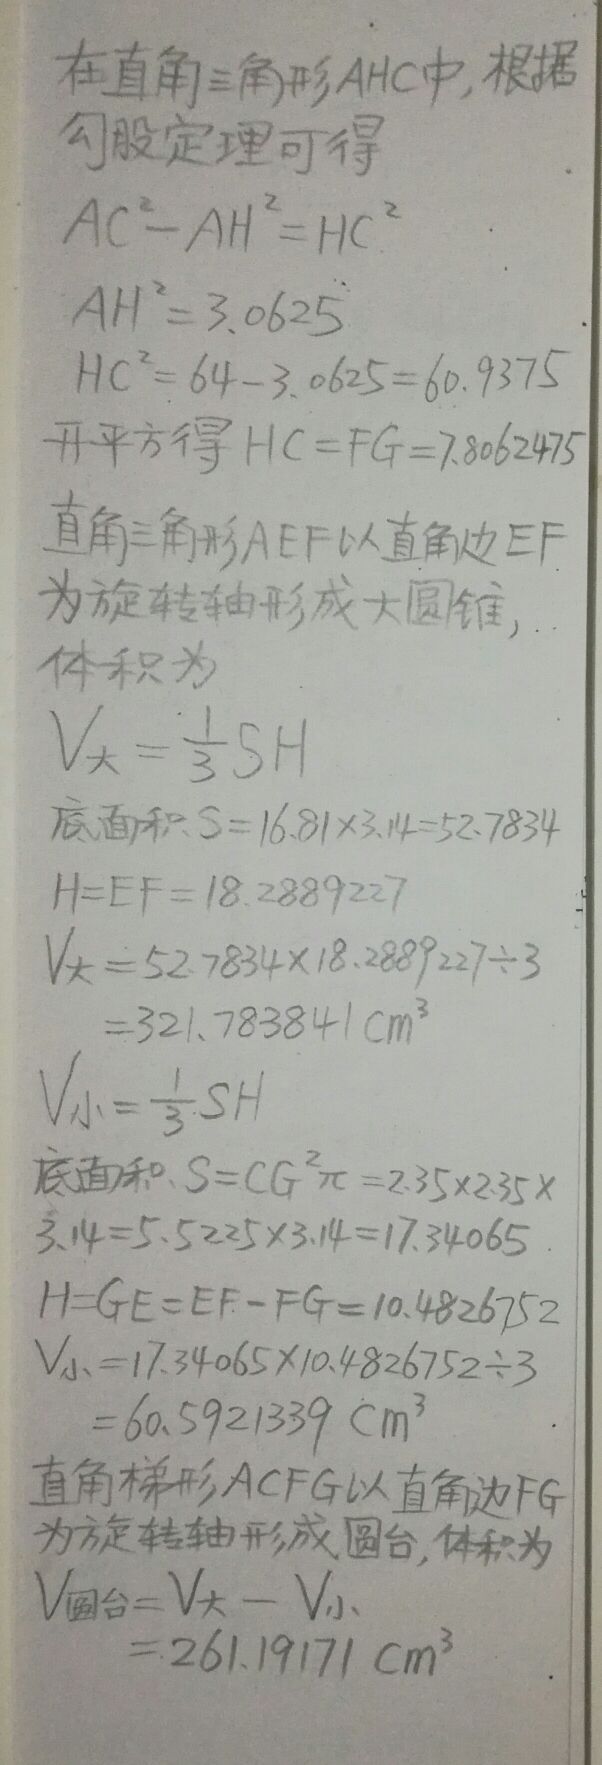 在直角三角形AHC中,根据
勾股定理可得
AC²-AH²=HC²
AH²=3.0625
HC²=64-3.0625=60.9375
开平方得HC=FG=7.8062475
直角三角形AEF以直角边EF
为旋转轴形成大圆锥,
体积为
V大=1/3SH
底面积S=16.81×3.14=52.7834
H=EF=18.2889227
V大=52.7834×18.2889227÷3
=321.783841cm³
V小=1/3SH
底面积S=CG²π=2.35×2.35×
3.14=5.5225×3.14=17.34065
H=GE=EF-FG=10.4826752
V小=17.34065×10.4826752÷3
=60.5921339cm³
直角梯形ACFG以直角边FG
为旋转轴形成圆台,体积为
V圆台=V大-V小
=261.19171cm³